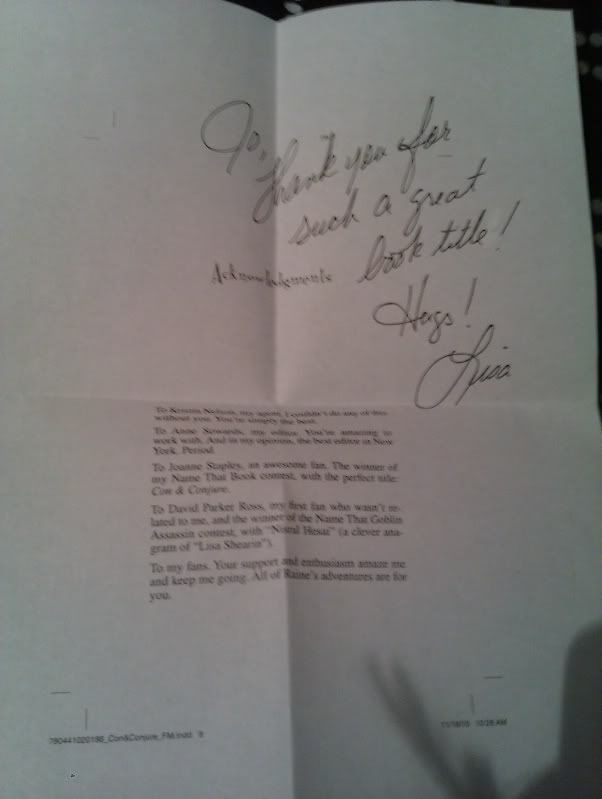 Jo,
Thank you for
such a great
book title!
Hugs!
Lisa
Acknowledgments
To Kristin Nelson, my agent, I couldn't do any of this
without you. You're simply the best.
To Anne Sowards, my editor. You're amazing to
work with. And in my opinion, the best editor in New
York. Period.
To Joanne Stapley, an awesome fan. The winner of
my Name That Book contest, with the perfect title:
Con & Conjure.
To David Parker Ross, my first fan who wasn't re-
lated to me, and the winner of the Name That Goblin
Assassin contest, with "Nisral Hesai" (a clever ana-
gram of "Lisa Shearin").
To my fans. Your support and enthusiasm amaze me
and keep me going. All of Raine's adventures are for
you.
780441020188_Con&Conjure_FM.indd 9
11/18/10 10:28 AM